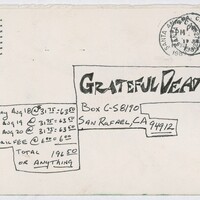 GRATEFUL DEAD
Box C-S8190
SAN RAFAEL, CA
94912
Aug 18 @ 31.75 = 63.50
Aug 19 @ 31.75 = 63.50
Aug 20 @ 31.75 = 63.50
FEE @ 6.00 = 6.00
TOTAL 196.50
OR ANYTHING